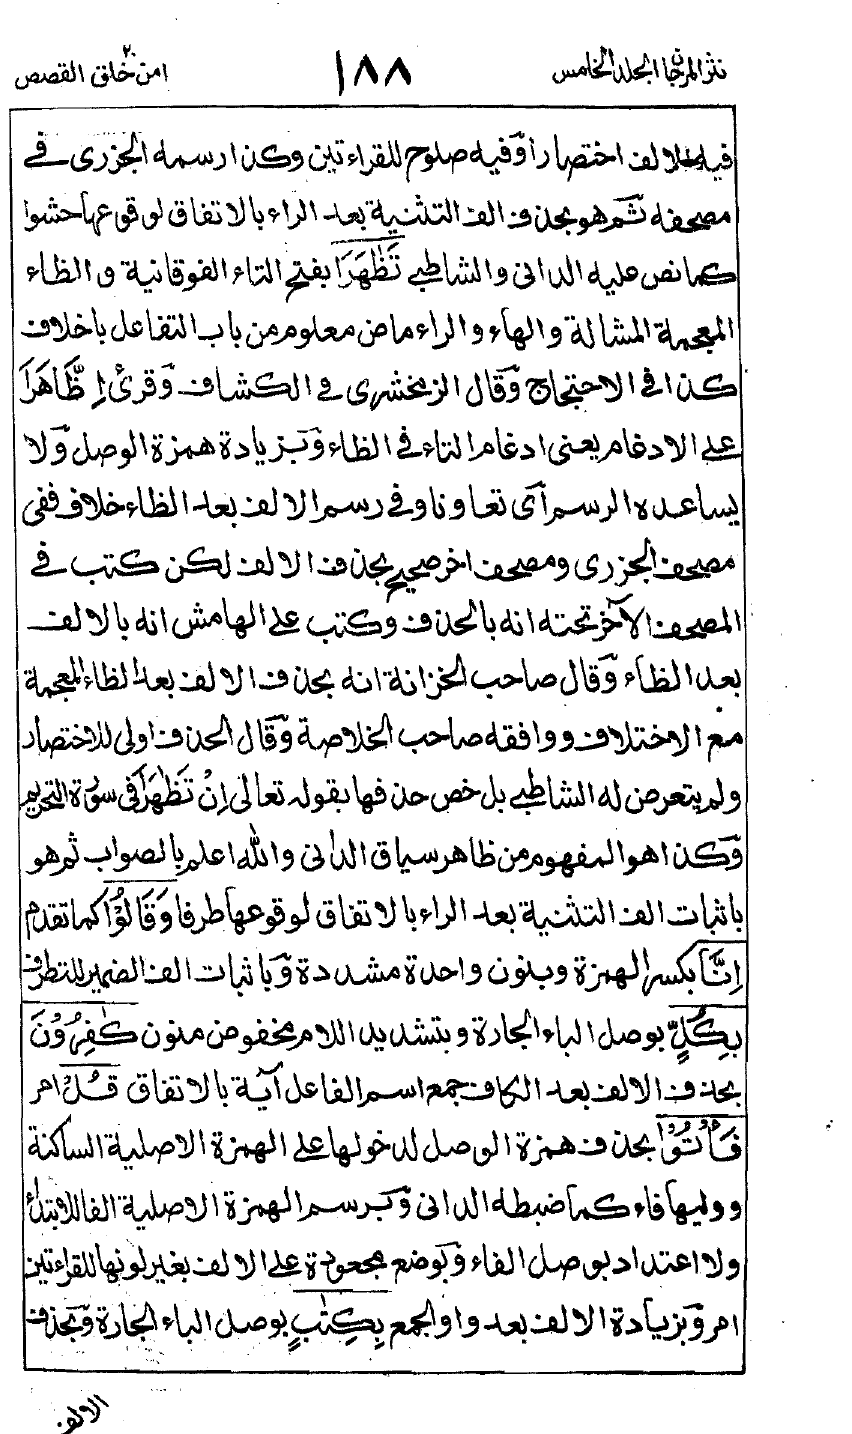 نثر المرجان المجلد الخامس
١٨٨
امن خلق ٢٠ القصص
فيه الالف اختصارا وفيه صلوح للقراءتين وكذا رسمه الجزرى فے
مصحفه ثم هو بحذف الف التثنية بعد الراء بالاتفاق لوقوعها حشوا
كما نص عليه الدانى والشاطبے تَظٰهَرَا بفتح التاء الفوقانية والظاء
المعجمة المشالة والهاء والراء ماض معلوم من باب التفاعل باخلاف
كذا فى الاحتجاج وَقال الزمخشرى فے الكشاف وَقرئ اِظَّاهَرَا
علے الادغام يعنى ادغام التاء فے الظاء وَبزيادة همزة الوصل وَلا
يساعده الرسم اَى تعاونا وفے رسم الالف بعد الظاء خلاف ففى
مصحف الجزرى ومصحف اخر صحيح بحذف الالف لكن كتب فے
المصحف الآخر تحته انه بالحذف وكتب علے الهامش انه بالالف
بعد الظاء وَقال صاحب الخزانة انه بحذف الالف بعد الظاء المعجمة
مع الاختلاف ووافقه صاحب الخلاصة وَقال الحذف اولى للاختصار
ولم يتعرض له الشاطبے بل خص حذفها بقوله تعالى اِنْ تَظٰهَرَا فى سورة التحريم
وَكذا هو المفهوم من ظاهر سياق الدانى والله اعلم بالصواب ثم هو
باثبات الف التثنية بعد الراء بالاتفاق لوقوعها طرفا وَقَالُوْٓا كما تقدم
اِنَّا بكسر الهمزة وبنون واحدة مشددة وَباثبات الف الضمير للتطرف
بِكُلٍّ بوصل الباء الجارة وبتشديد اللام مخفوض منون كٰفِرُوْنَ
بحذف الالف بعد الكاف جمع اسم الفاعل آية بالاتفاق قُلْ امر
فَأْتُوْا بحذف همزة الوصل لدخولها على الهمزة الاصلية الساكنة
ووليها فاء كما ضبطه الدانى وَبرسم الهمزة الاصلية الفا للابتداء
ولا اعتداد بوصل الفاء وَبوضع مجعودة علے الالف بغير لونها للقراءتين
امر وَبزيادة الالف بعد واو الجمع بِكِتٰبٍ بوصل الباء الجارة وَبحذف
الالف